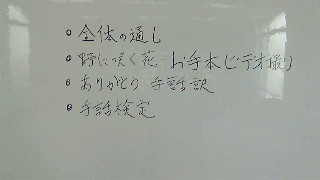 • 全体の通し
• 野に咲く花 お手本ビデオ撮り
• ありがとう 手話訳
• 手話検定